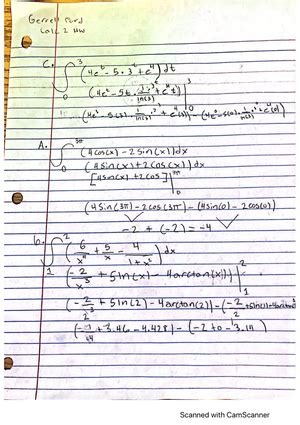 Gerrell Pord
Calc 2 HW
C. ∫₀³ (4e^t - 5·3^t + e^4) dt
(4e^t - 5t · 1/ln(3) 3^t + e^4 t) |₀³
A. ∫₀^3π (4cos(x) - 2sin(x)) dx
(4sin(x) + 2cos(x)) dx
[4sin(x) + 2cos] |₀^3π
(4sin(3π) - 2cos(3π) - (4sin(0) - 2cos(0)
-2 + (-2) = -4
b. ∫₁² (6/x⁴ + 5/x - 4/1+x²) dx
(-2/x³ + 5ln(x) - 4arctan(x)) |₁²
(-2/2³ + 5ln(2) - 4arctan(2)) - (-2/2
+ 3.46 - 4.428) - (-2 + 0 - 3.14)
Scanned with CamScanner